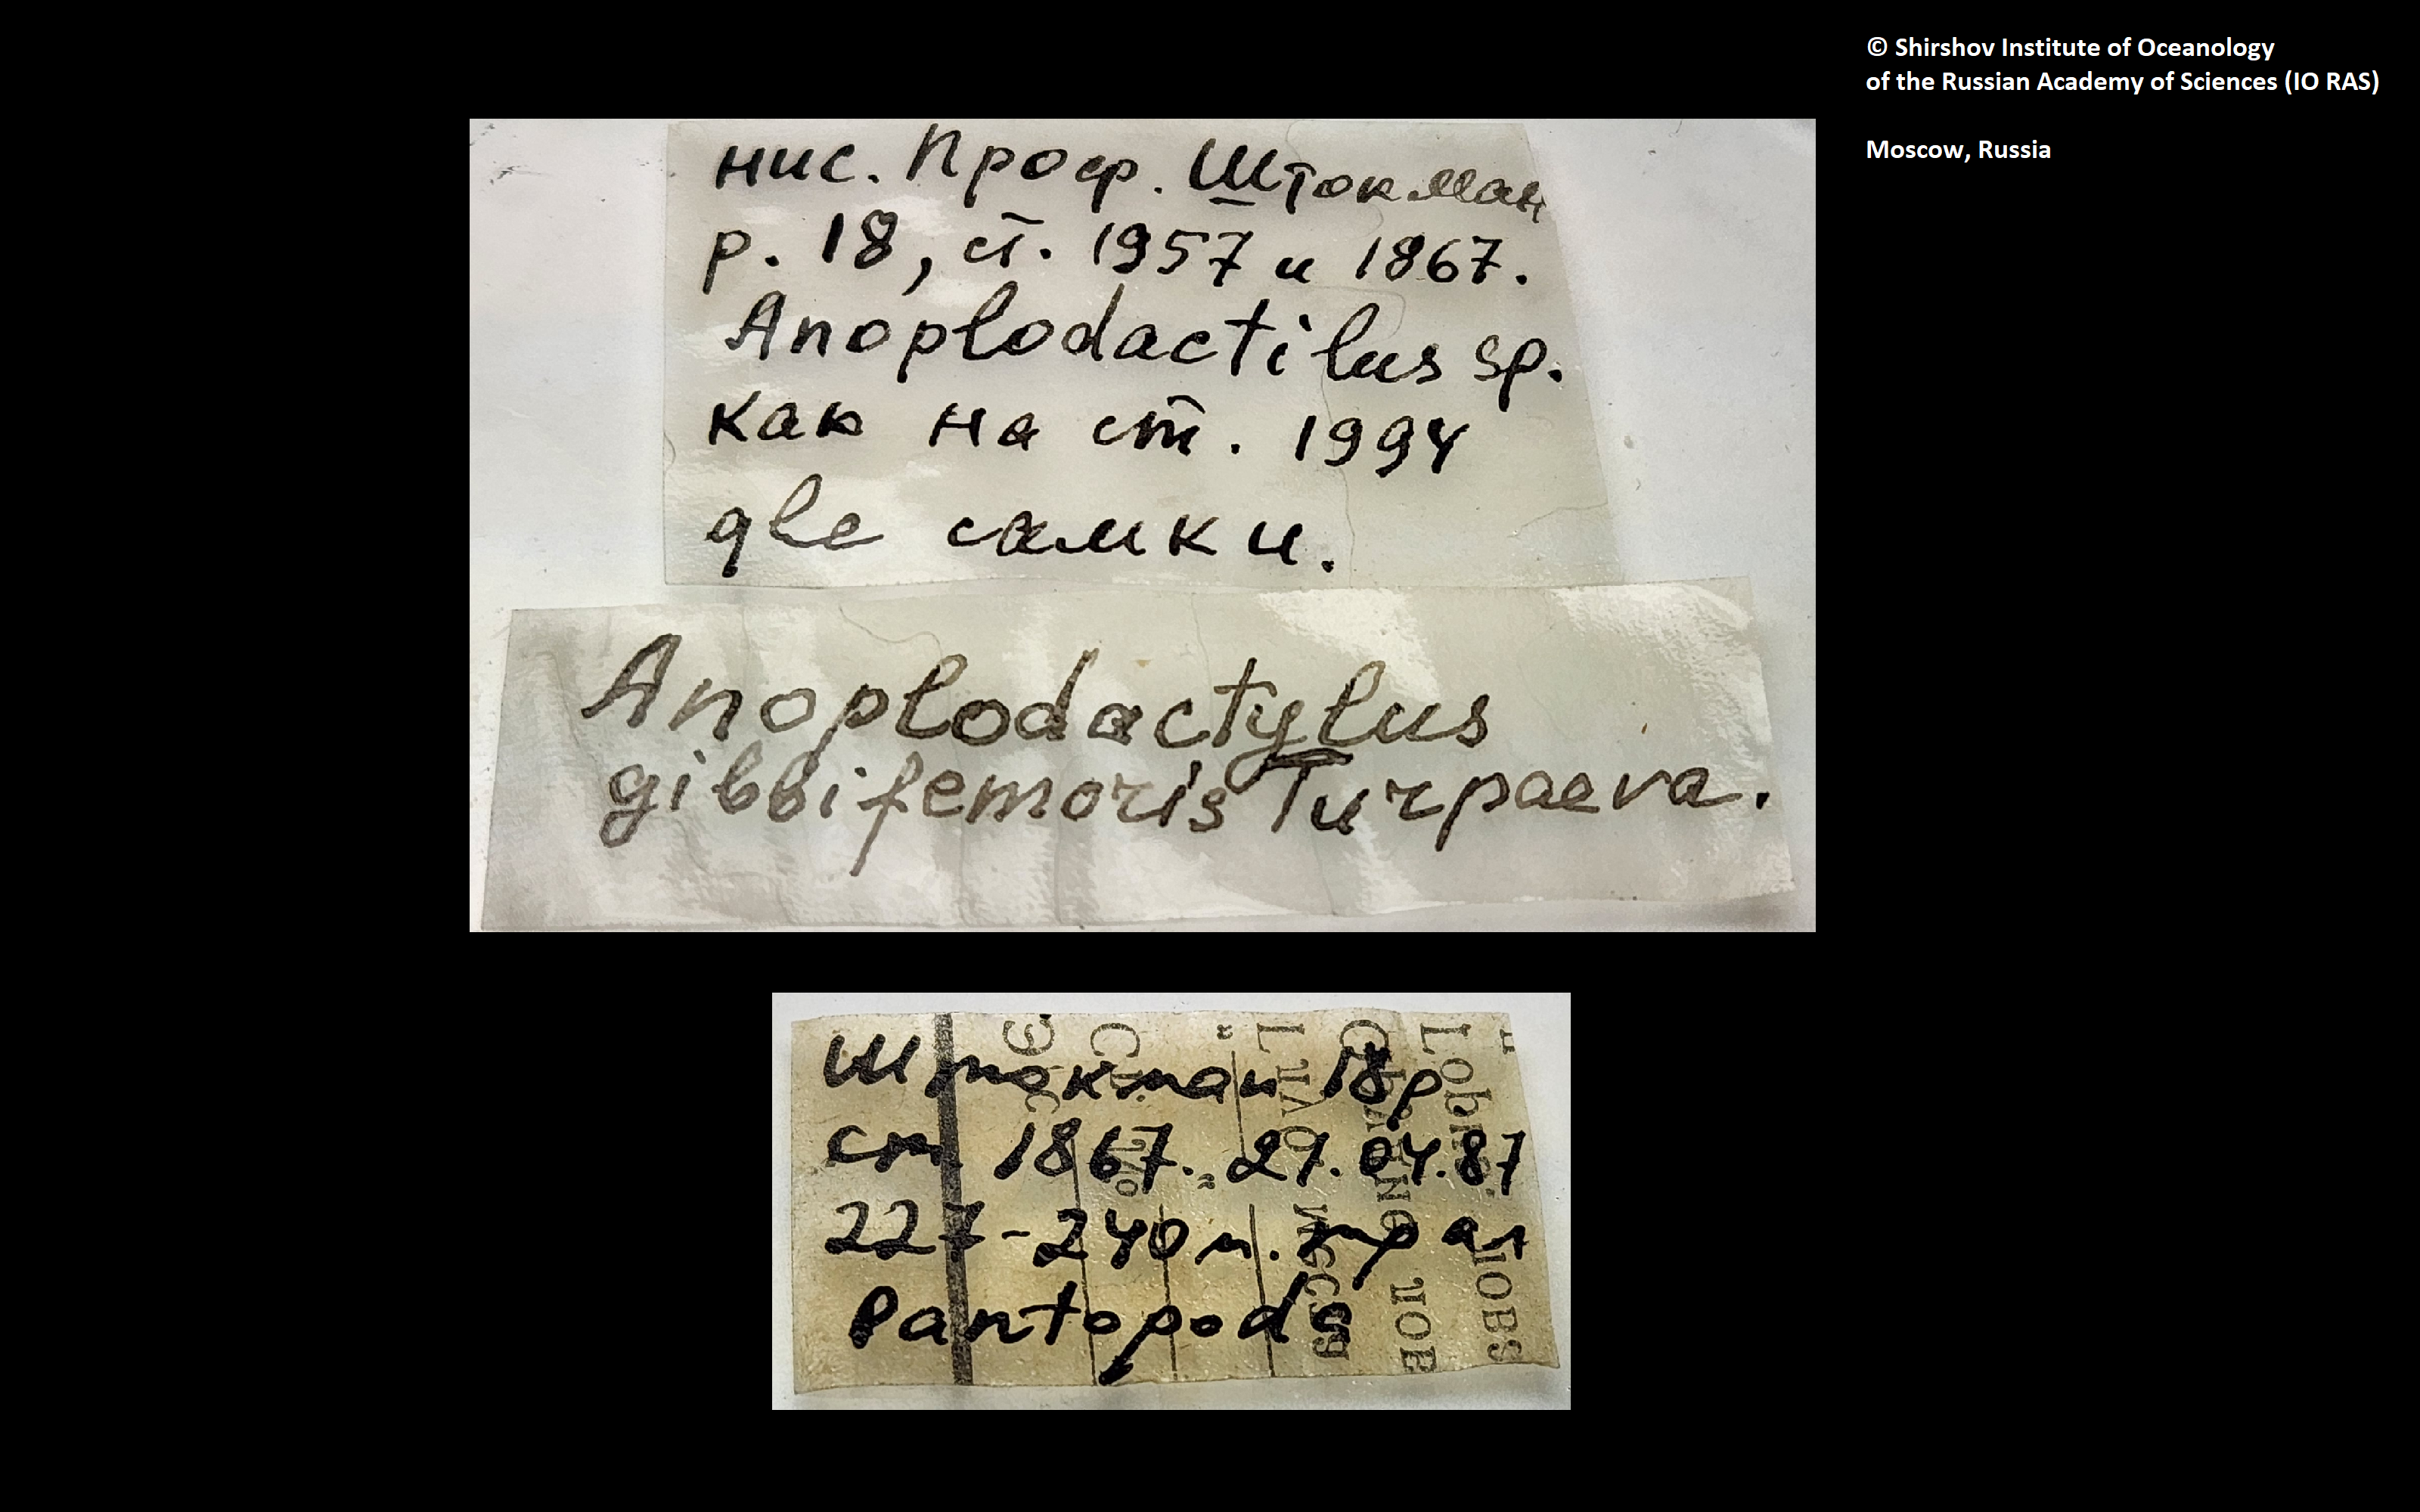 © Shirshov Institute of Oceanology
of the Russian Academy of Sciences (IO RAS)
Moscow, Russia
нис. Проф. Штокман
р. 18, ст. 1957 и 1867.
Anoplodactilus sp.
как на ст. 1994
две самки.
Anoplodactylus
gibbifemoris Turpaeva.
Штокман 18р
ст 1867. 27.04.87
227-240м. трал
Pantopoda